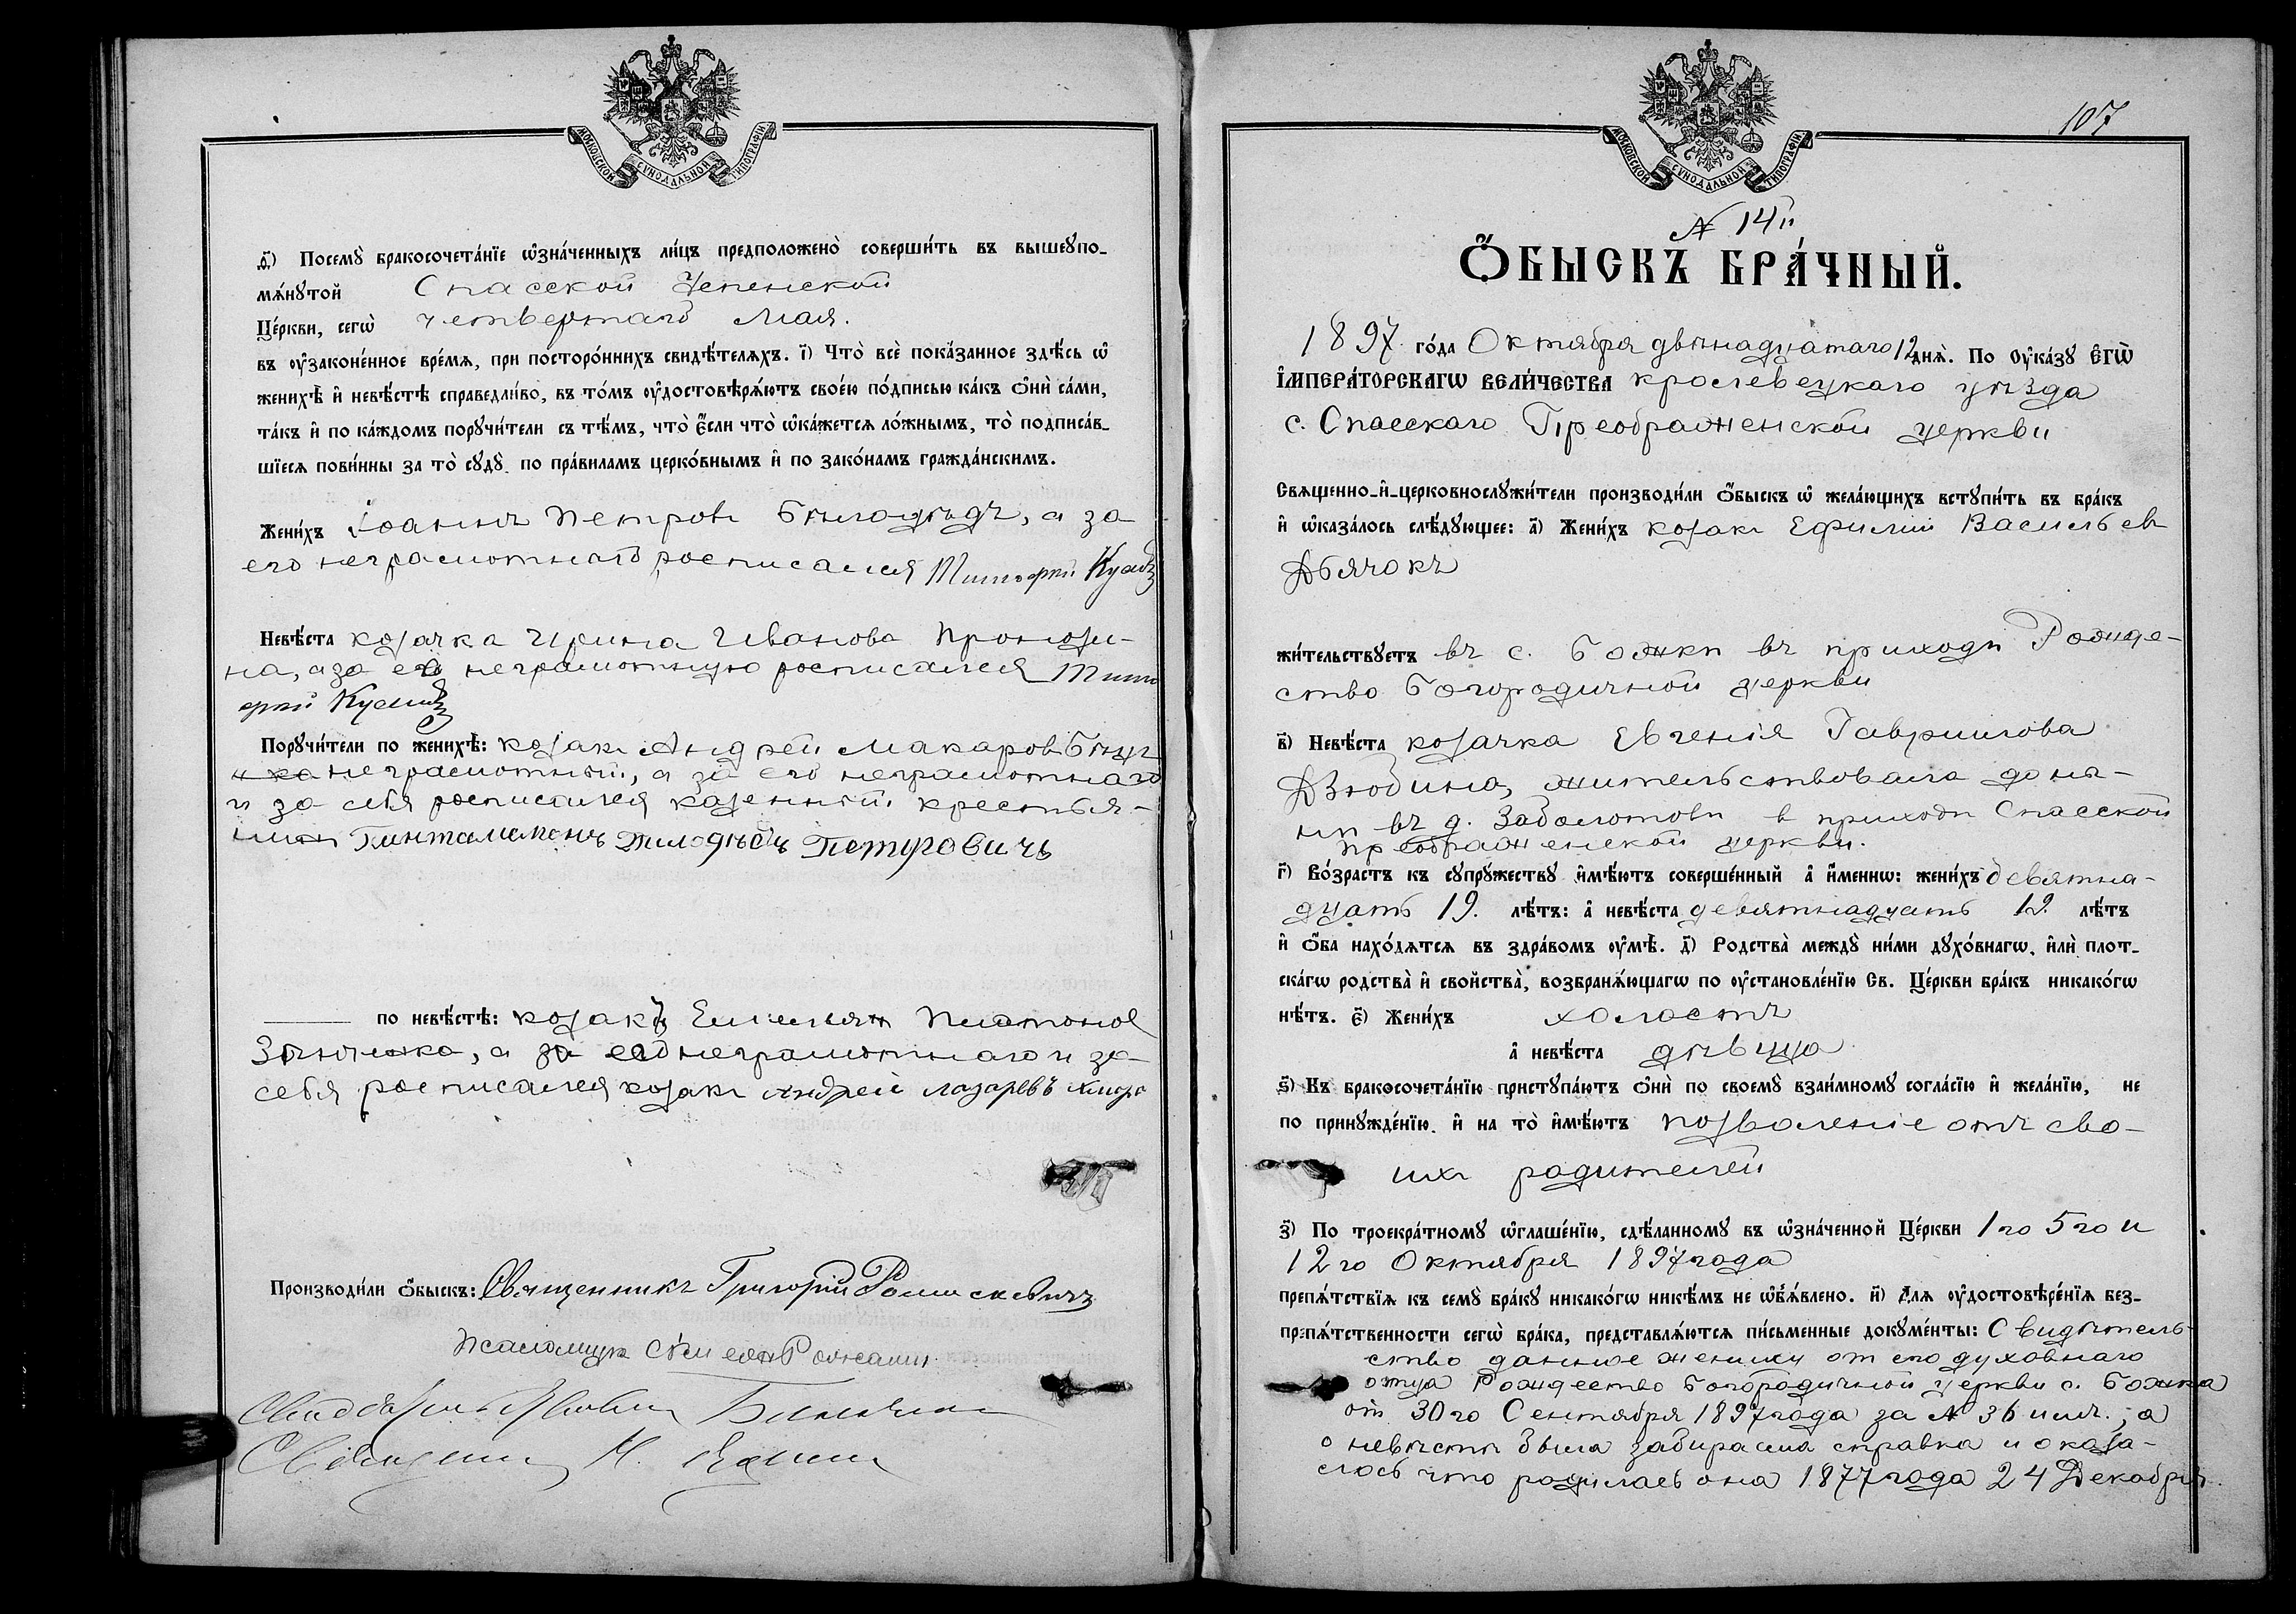 МОСКОВСКОЙ СѴНОДАЛЬНОЙ ТИПОГРАФІИ
Посемꙋ̀ бракосочета́нїе ѡ҆зна́ченныхъ ли́цъ предположено̀ соверши́ть въ вышеꙋпо-
мѧ́нꙋтой Спасской
Це́ркви, сегѡ̀ четвертаго Мая.
въ ᲂу҆законе́нное вре́мѧ, при посторо́ннихъ свидѣ́телѧхъ. і҃) Что̀ всѐ пока́занное здѣ́сь ѡ҆
женихѣ̀ и҆ невѣ́стѣ справедли́во, въ то́мъ ᲂу҆достовѣрѧ́ютъ свое́ю по́дписью ка́къ ѻ҆нѝ са́ми,
та́къ и҆ по ка́ждомъ порꙋчи́тели съ тѣ́мъ, что̀ є҆́сли что̀ ѡ҆ка́жетсѧ ло́жнымъ, то̀ подписа́в-
шїесѧ пови́нны за то̀ сꙋдꙋ̀ по пра́виламъ церко́внымъ и҆ по зако́намъ гражда́нскимъ.
Жени́хъ Іоаннъ Петровъ Билодѣдъ, а за
его неграмотнаго росписался
Невѣ́ста козачка Ирина Иванова
на, а за ея неграмотную росписался
Порꙋчи́тели по женихѣ̀: козакъ Андрей Макаровъ
неграмотный, а за его неграмотнаго
и за себя росписался казенный крестья-
нинъ Петровичъ
по невѣ́стѣ: козакъ Емельян Платонов
а за его неграмотнаго и за
себя росписался козакъ Андрей Лазаревъ
Производи́ли ѻ҆́быскъ: Священникъ Григорій
Псаломщикъ
107
МОСКОВСКОЙ СѴНОДАЛЬНОЙ ТИПОГРАФІИ
№ 14й
Ѻ҆́БЫСКЪ БРА́ЧНЫЙ.
1897 го́да Октября двѣнадцатаго 12 днѧ̀. По Оу҆ка́зꙋ Є҆гѡ̀
І҆мпера́торскагѡ Вели́чества кролевецкаго уѣзда
с. Спасскаго Преображенской церкви
Свѧщенно-и҆-церковнослꙋжи́тели производи́ли ѻ҆́быскъ ѡ҆ жела́ющихъ встꙋпи́ть въ бра́къ
и҆ ѡ҆каза́лось слѣ́дꙋющее: а҃) Жени́хъ козакъ Ефимій Васильев
Дьячокъ
жи́тельствꙋетъ въ с. Божкѣ въ приходѣ Рожде-
ство Богородичной церкви
в҃) Невѣ́ста козачка Евгенія Гаврилова
Дзюбина, жительствовала доны-
нѣ въ д. Заболотовѣ в приходѣ Спасской
Преображенской церкви.
г҃) Во́зрастъ къ сꙋпрꙋ́жествꙋ и҆мѣ́ютъ соверше́нный а҆ и҆́меннѡ: жени́хъ девятна-
дцать 19. лѣ́тъ: а҆ невѣ́ста девятнадцать 19. лѣ́тъ
и҆ ѻ҆́ба нахо́дѧтсѧ въ здра́вомъ ᲂу҆мѣ̀. д҃) Родства̀ междꙋ̀ ни́ми дꙋхо́внагѡ, и҆лѝ плот-
ска́гѡ родства̀ и҆ свойства̀, возбранѧ́ющагѡ по ᲂу҆становле́нїю Св. Це́ркви бра́къ никако́гѡ
нѣ́тъ. є҃) Жени́хъ холостъ
а҆ невѣ́ста дѣвица
ѕ҃) Къ бракосочета́нїю пристꙋпа́ютъ ѻ҆нѝ по своемꙋ̀ взаи́мномꙋ согла́сїю и҆ жела́нїю, не
по принꙋжде́нїю, и҆ на то̀ и҆мѣ́ютъ позволеніе отъ сво-
ихъ родителей
з҃) По троекра́тномꙋ ѡ҆глаше́нїю, сдѣ́ланномꙋ въ ѡ҆зна́ченной Це́ркви 1го 5го и
12го Октября 1897 года
препѧ́тствїѧ къ семꙋ̀ бра́кꙋ никако́гѡ никѣ́мъ не ѡ҆б̾ѧ́влено. и҃) Длѧ ᲂу҆достовѣре́нїѧ без-
препѧ́тственности сегѡ̀ бра́ка, представлѧ́ютсѧ пи́сьменные докꙋме́нты: Свидѣтель-
ство данное жениху от его духовнаго
отца Рождество Богородичной церкви с. Божка
от 30го Сентября 1897 года за № 36 а
о невѣстѣ была забирама справка и оказа-
лось что родилась она 1877 года 24 Декабря.